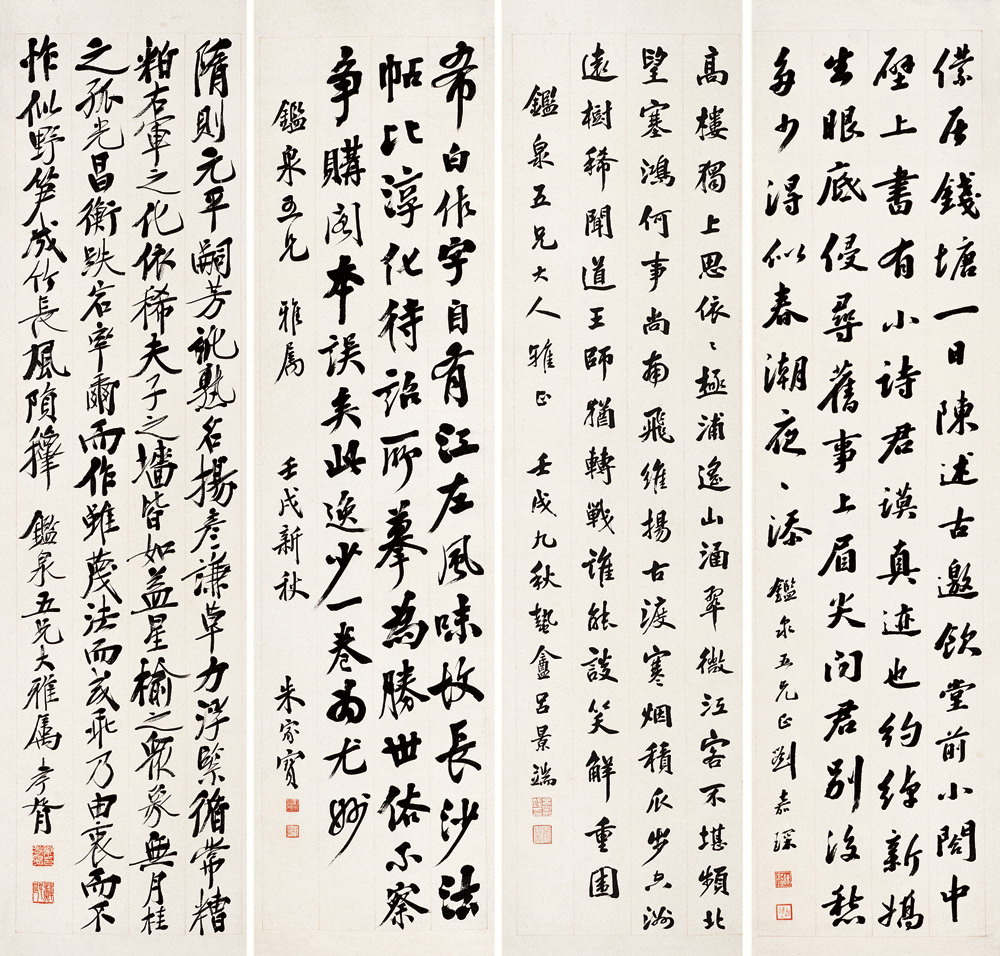 僕居錢塘一日陳述古邀飲堂前小閣中
壁上書有小詩君謨真迹也約綽新嬌
生眼底侵尋舊事上眉尖問君別後愁
多少得似春潮夜〻添
鑑泉五兄正 劉嘉琛
高樓獨上思依〻極浦遙山涵翠微江客不堪頻北
望塞鴻何事尚南飛維揚古渡寒烟積瓜步空洲
遠樹稀聞道王師猶轉戰誰能談笑解重圍
鑑泉五兄大人雅正 壬戌九秋蟄盦呂景端
希白作字自有江左風味故長沙法
帖比淳化待詔所摹為勝世俗不察
爭購閣本誤矣此逸少一卷為尤妙
鑑泉五兄雅屬 壬戌新秋 朱家寶
隋則元平嗣芳訛熟名揚彥謙草力浮緊循常糟
粕右軍之化依稀夫子之墻皆如益星榆之眾象無月桂
之孤光昌衡跌宕率爾而作雖蔑法而或乖乃由衷而不
怍似野笋成竹長風隕籜
鑑泉五兄大雅屬 孝胥